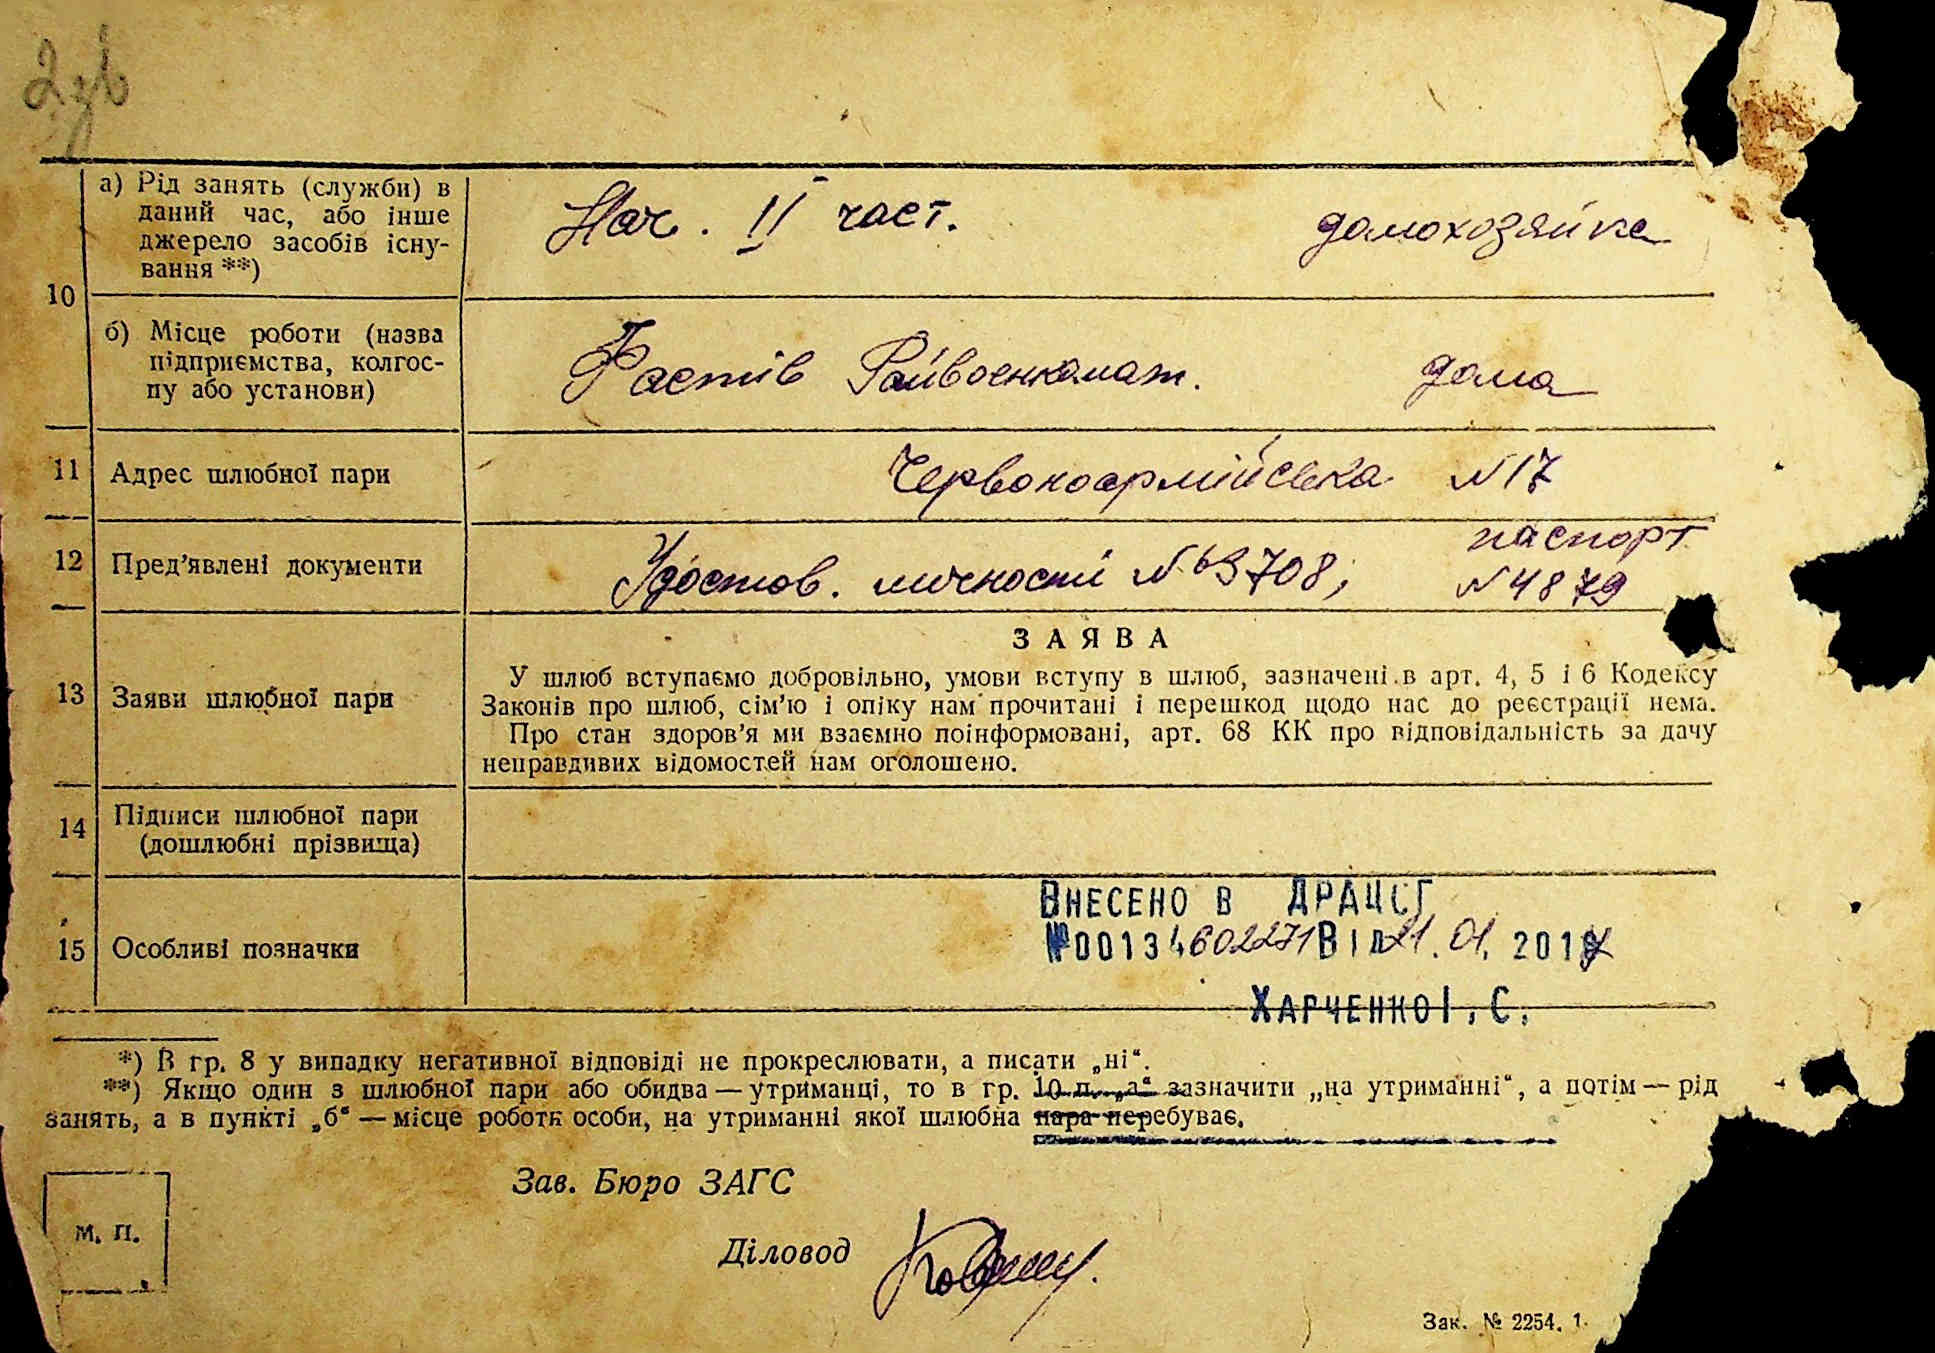 2зв
а) Рід занять (служби) в
даний час, або інше
джерело засобів існу-
вання **)
Нач. II част.
домохозяйка
10
б) Місце роботи (назва
підприємства, колгос-
пу або установи)
Фастів Райвоенкомат.
дома
11 Адрес шлюбної пари
Червоноармійська №17
12 Пред'явлені документи
Удостов. личності № 69708;
паспорт
№4879
13 Заяви шлюбної пари
ЗАЯВА
У шлюб вступаємо добровільно, умови вступу в шлюб, зазначені в арт. 4, 5 і 6 Кодексу
Законів про шлюб, сім'ю і опіку нам прочитані і перешкод щодо нас до реєстрації нема.
Про стан здоров'я ми взаємно поінформовані, арт. 68 КК про відповідальність за дачу
неправдивих відомостей нам оголошено.
14 Підписи шлюбної пари
(дошлюбні прізвища)
15 Особливі позначки
ВНЕСЕНО В ДРАЦСГ
№00134602271 ВІД 21.01.2017
ХАРЧЕНКО І. С.
*) В гр. 8 у випадку негативної відповіді не прокреслювати, а писати „ні“.
**) Якщо один з шлюбної пари або обидва — утриманці, то в гр. 10 п. „а“ зазначити „на утриманні“, а потім — рід
занять, а в пункті „б“ — місце роботи особи, на утриманні якої шлюбна пара перебуває.
Зав. Бюро ЗАГС
м. п.
Діловод
Зак. № 2254. 1